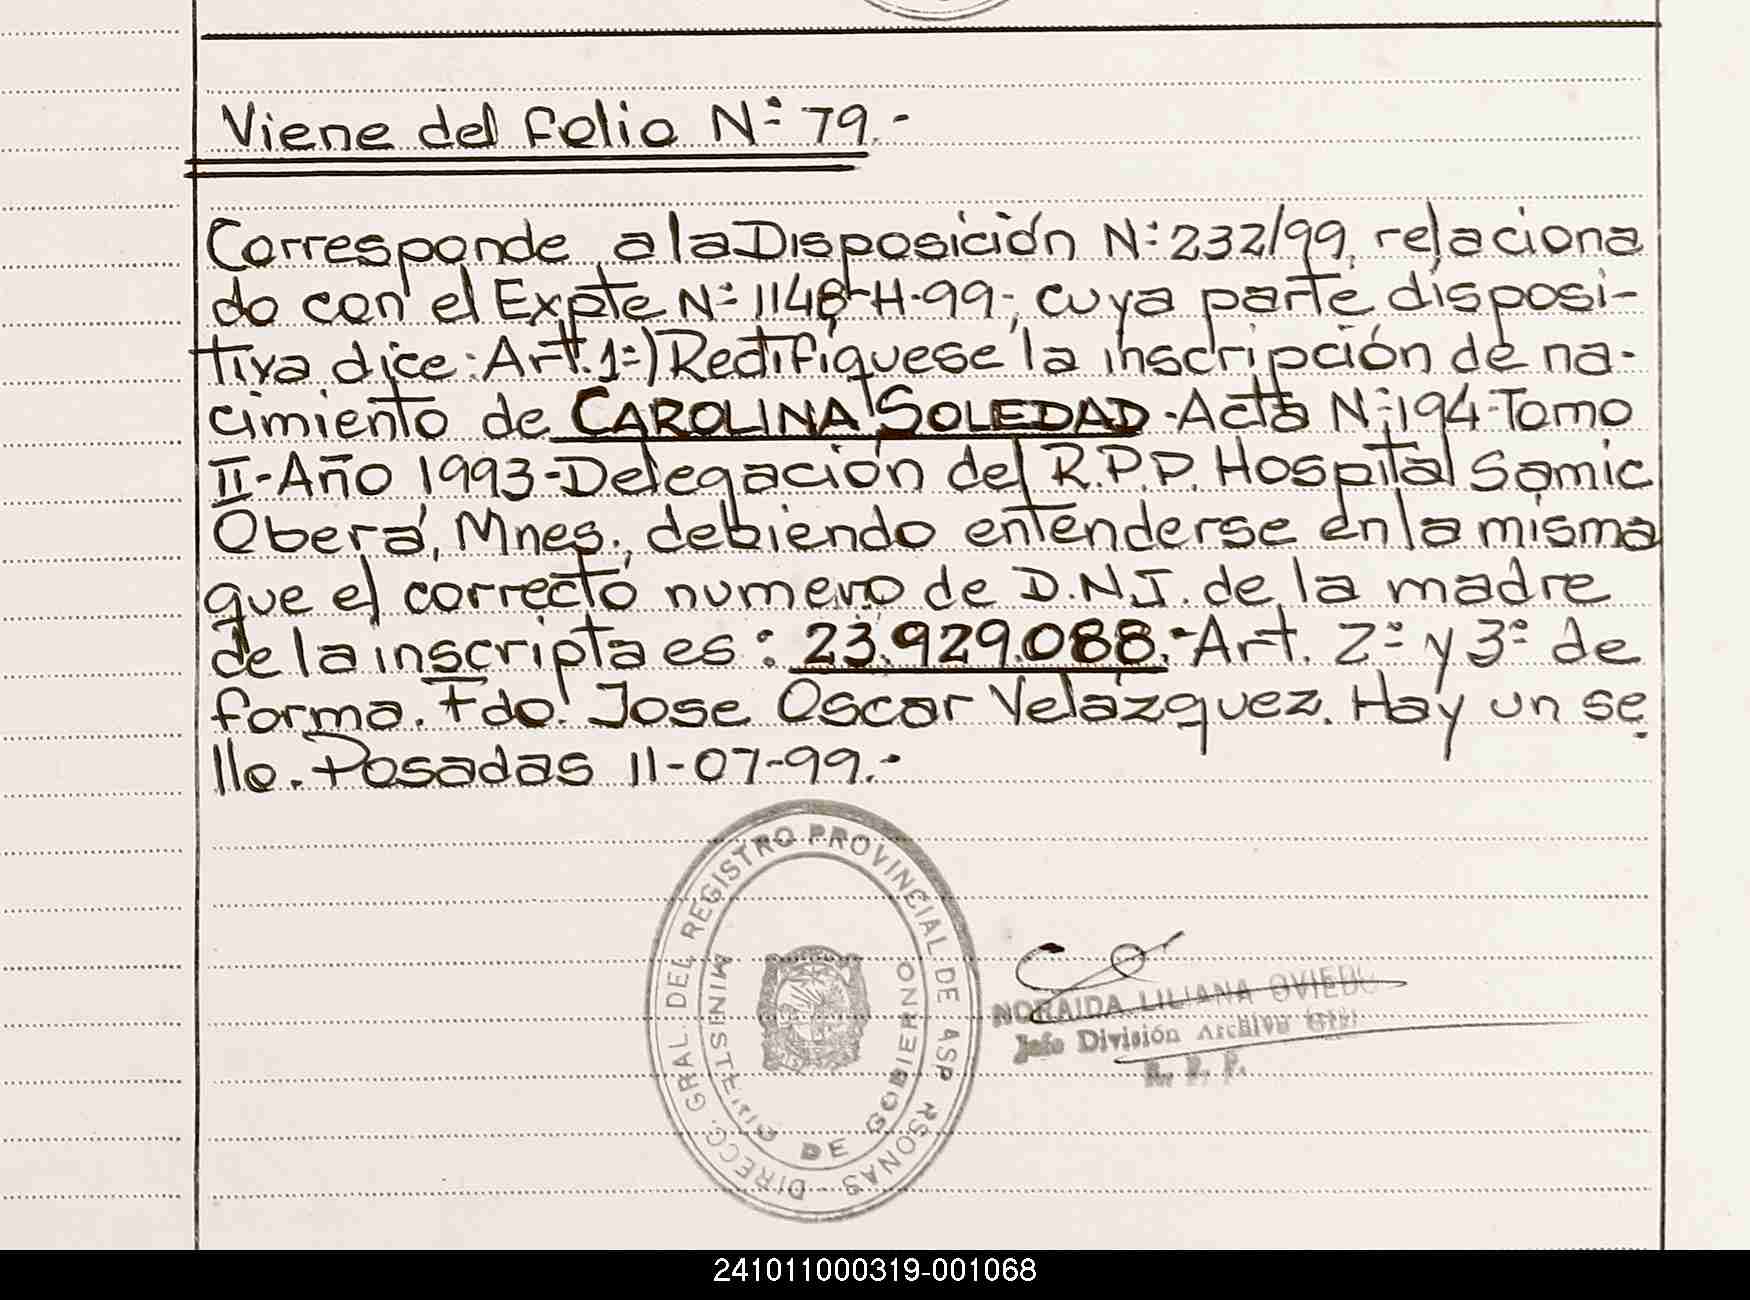 Viene del folio N° 79.-
Corresponde a la Disposición N° 232/99, relaciona
do con el Expte N° 1148-H-99-, cuya parte disposi-
tiva dice: Art. 1°) Rectifíquese la inscripción de na-
cimiento de CAROLINA SOLEDAD - Acta N° 194-Tomo
II-Año 1993-Delegación del R.P.P. Hospital Samic
Oberá, Mnes., debiendo entenderse en la misma
que el correcto numero de D.N.I. de la madre
de la inscripta es: 23.929.088.- Art. 2° y 3° de
forma. Fdo. Jose Oscar Velázquez. Hay un se
llo. Posadas 11-07-99.-
DIRECC. GRAL. DEL REGISTRO PROVINCIAL DE ASP RSONAS
MINISTERIO DE GOBIERNO
NORAIDA LILIANA OVIEDO
Jefe División Archivo Gral
R. P. P.
241011000319-001068